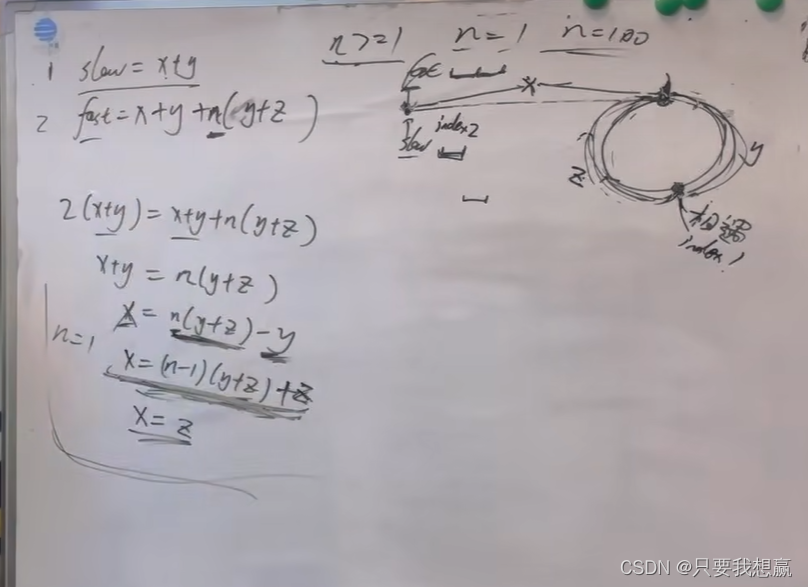 n>=1 n=1 n=100
1 slow=x+y
2 fast=x+y+n(y+z)
fast X
slow index2
y
z
相遇
index1
2(x+y)=x+y+n(y+z)
x+y=n(y+z)
x=n(y+z)-y
n=1
x=(n-1)(y+z)+z
x=z
CSDN @只要我想赢